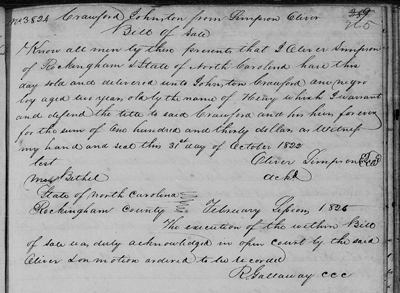 No 3824 Crawford Johnston from Simpson Oliver 265
Bill of Sale
Know all men by these presents that I Oliver Simpson
of Rockingham & State of North Carolina have this
day sold and delivered unto Johnston Crawford one negro
boy aged two years old by the name of Henry which I warrant
and defend the title to said Crawford and his heirs for ever
for the sum of One hundred and thirty dollars as Witness
my hand and seal this 31st day of October 1822
test Oliver Simpson Seal
Bethel ackd
State of North Carolina
Rockingham County February Session 1825
The execution of the within Bill
of sale was duly acknowledged in open court by the said
Oliver & on motion ordered to be recorded
R Gallaway CCC